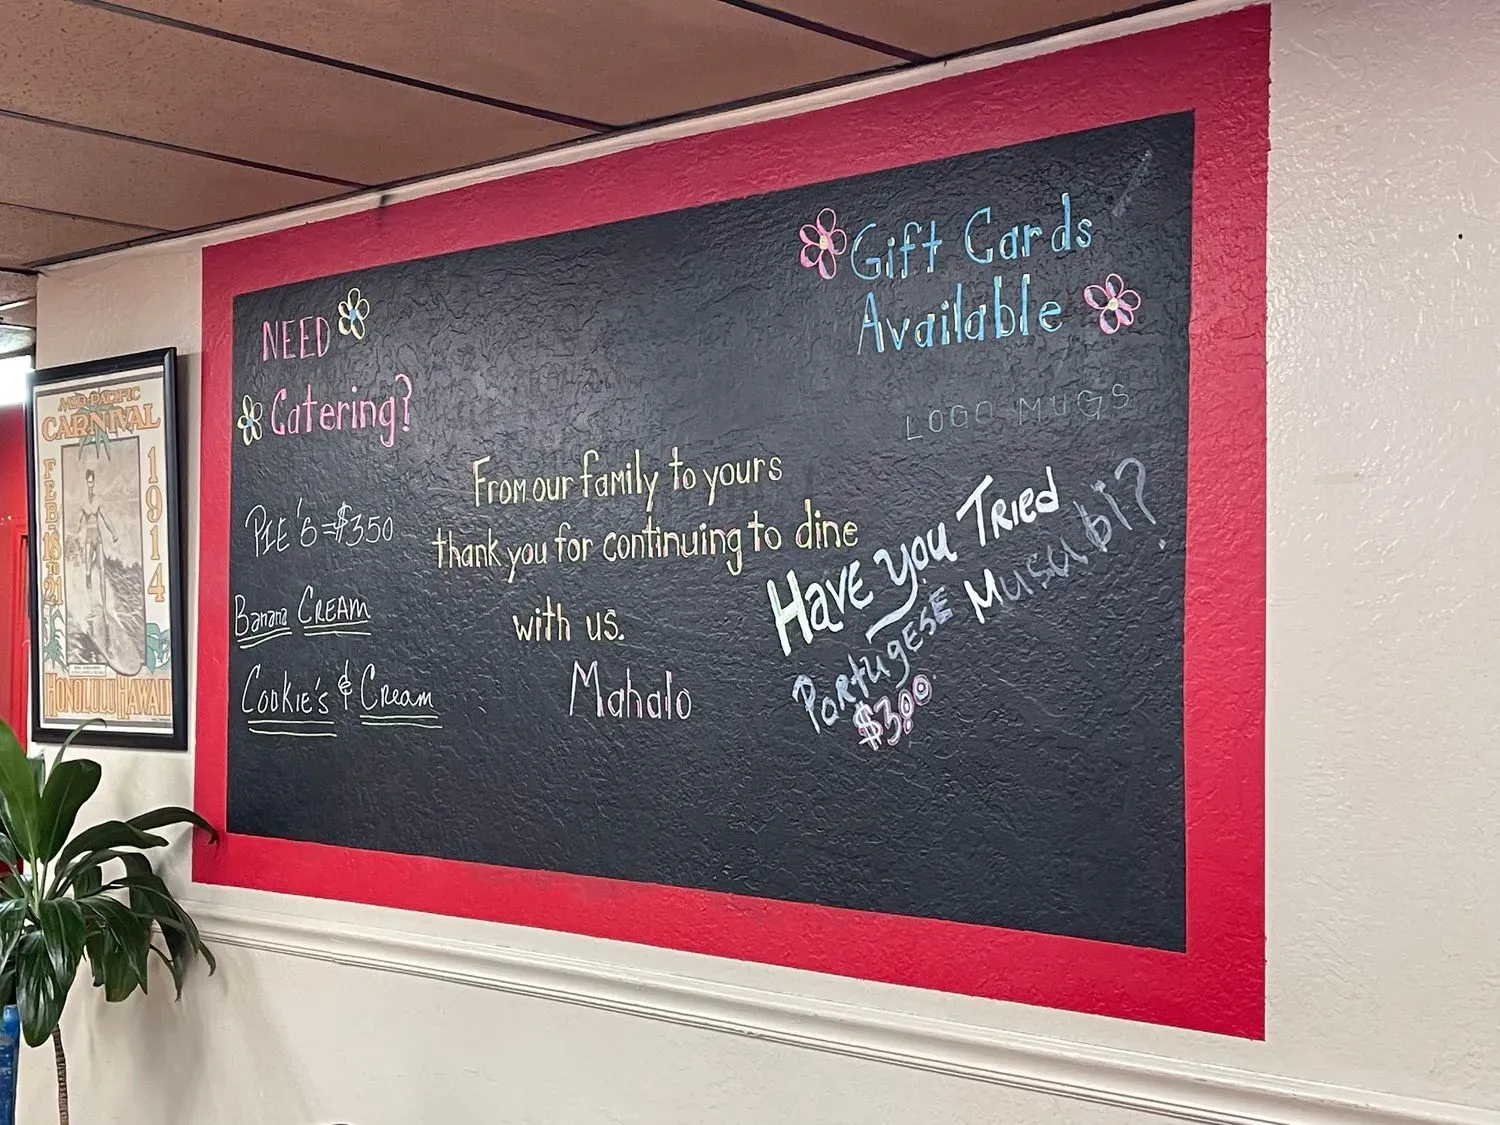 MID-PACIFIC
CARNIVAL
FEB-18 TO 21
1914
HONOLULU HAWAII
NEED
Catering?
PIE'S=$350
Banana CREAM
Cookie's & Cream
From our family to yours
thank you for continuing to dine
with us.
Mahalo
Gift Cards
Available
LOGO MUGS
Have you Tried
Portugese Musubi?
$300